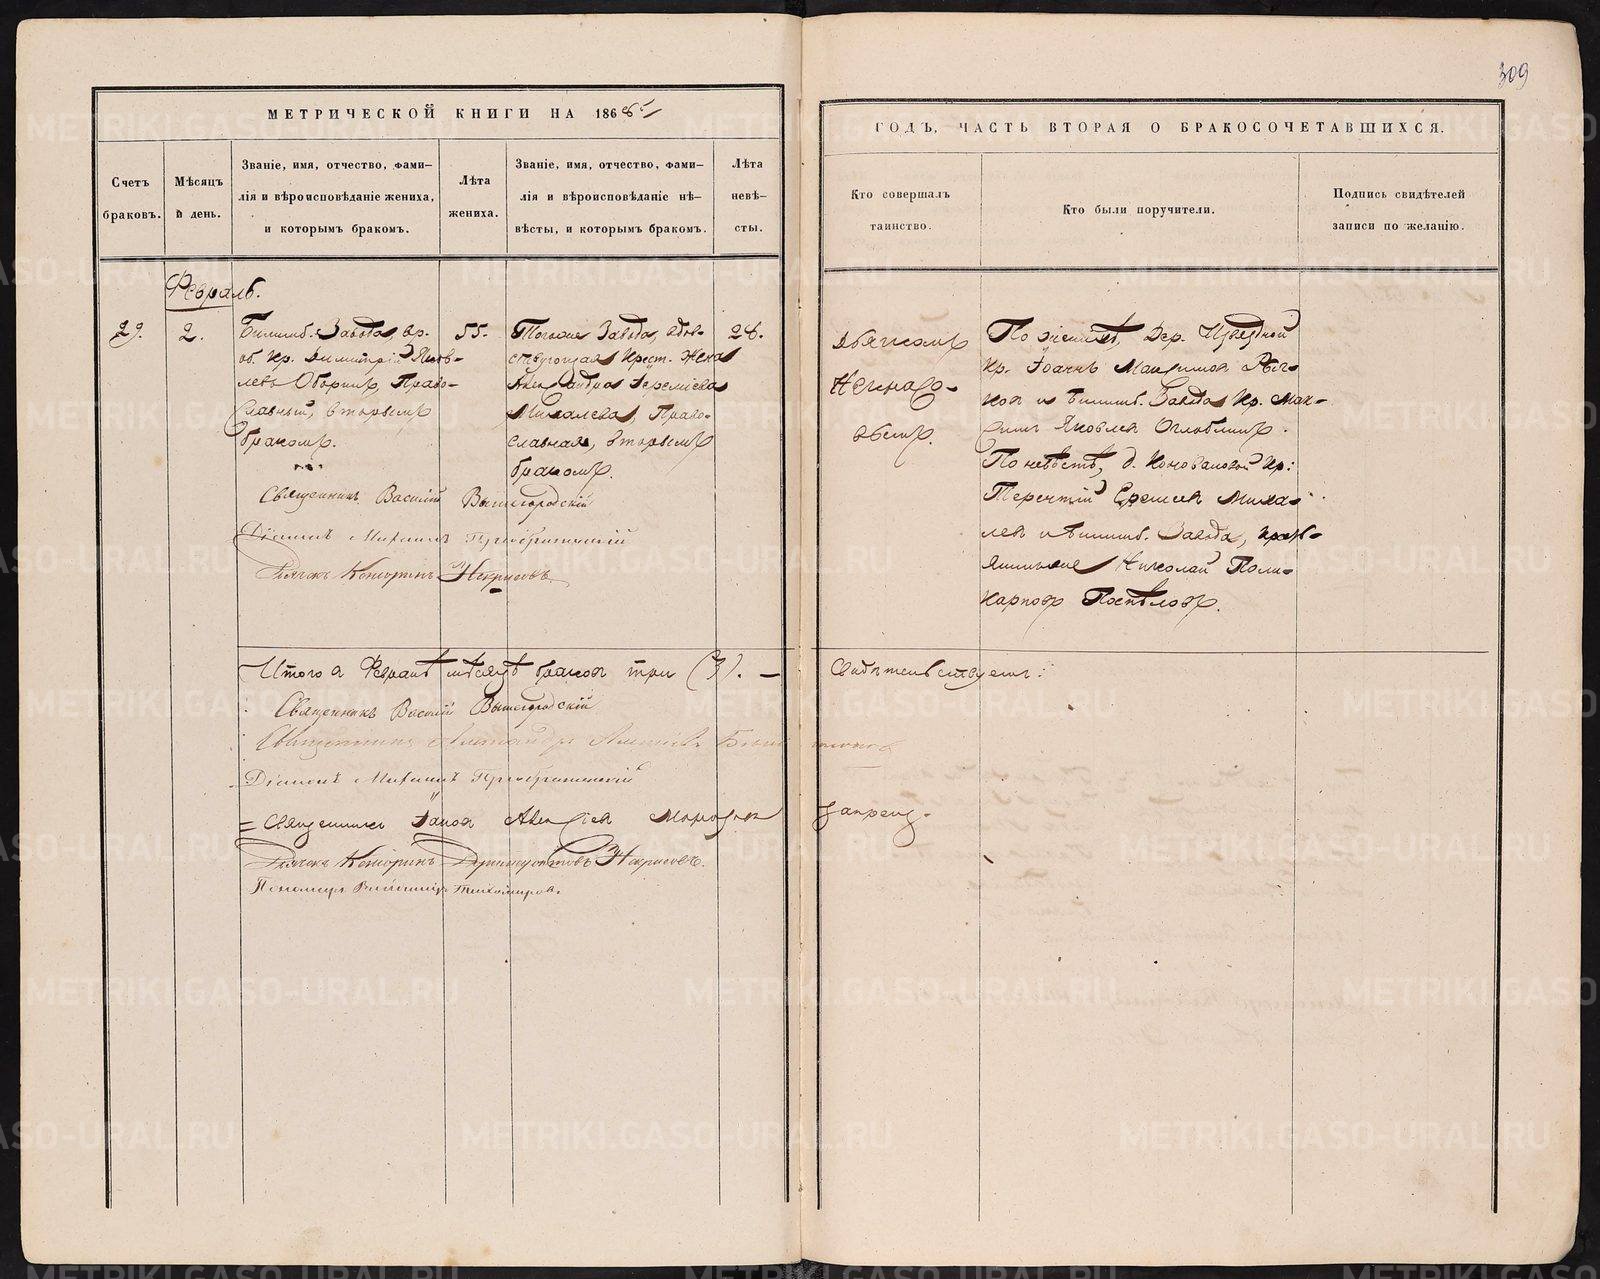 309
МЕТРИЧЕСКОЙ КНИГИ НА 1868
ГОДЪ, ЧАСТЬ ВТОРАЯ О БРАКОСОЧЕТАВШИХСЯ.
Счетъ
браковъ.
Мѣсяцъ
и день.
Званіе, имя, отчество, фами-
лія и вѣроисповѣданіе жениха,
и которымъ бракомъ.
Лѣта
жениха.
Званіе, имя, отчество, фами-
лія и вѣроисповѣданіе не-
вѣсты, и которымъ бракомъ.
Лѣта
невѣ-
сты.
Кто совершалъ
таинство.
Кто были поручители.
Подпись свидѣтелей
записи по желанію.
Февраль.
29.
2.
Билимб. Завода, вд-
ов Кр. Димитрій Яков-
левъ Оборинъ, Право-
славный, вторымъ
бракомъ.
55.
Тогоже Завода, вдов-
ствующая Крест. Жена
Александра Іереміева
Михалева, Право-
славная, вторымъ
бракомъ.
28.
Дьячкомъ
Некрасо-
вымъ.
По женихѣ, Дер.
Кр. Іоаннъ Максимов
и Билимб. Завода Кр. Мак-
симъ Яковлев Оглоблинъ.
По невѣстѣ, д. Коноваловой Кр:
Терентій Еремеев Миха-
лев и Билимб. Завода,
Николай Поли-
карповъ Поспѣловъ.
Священникъ Василій Вышегородскій
Діаконъ Михаилъ Преображенскій
Дьячекъ Некрасовъ
Итого в Февралѣ мѣсяцѣ браков три (3). —
Свидѣтельствуемъ:
Священникъ Василій Вышегородскій
Священникъ Александръ
Діаконъ Михаилъ Преображенскій
= Священникъ Іаков Алексіев
Дьячекъ Некрасовъ.
Пономарь Тихомировъ.
METRIKI.GASO-URAL.RU